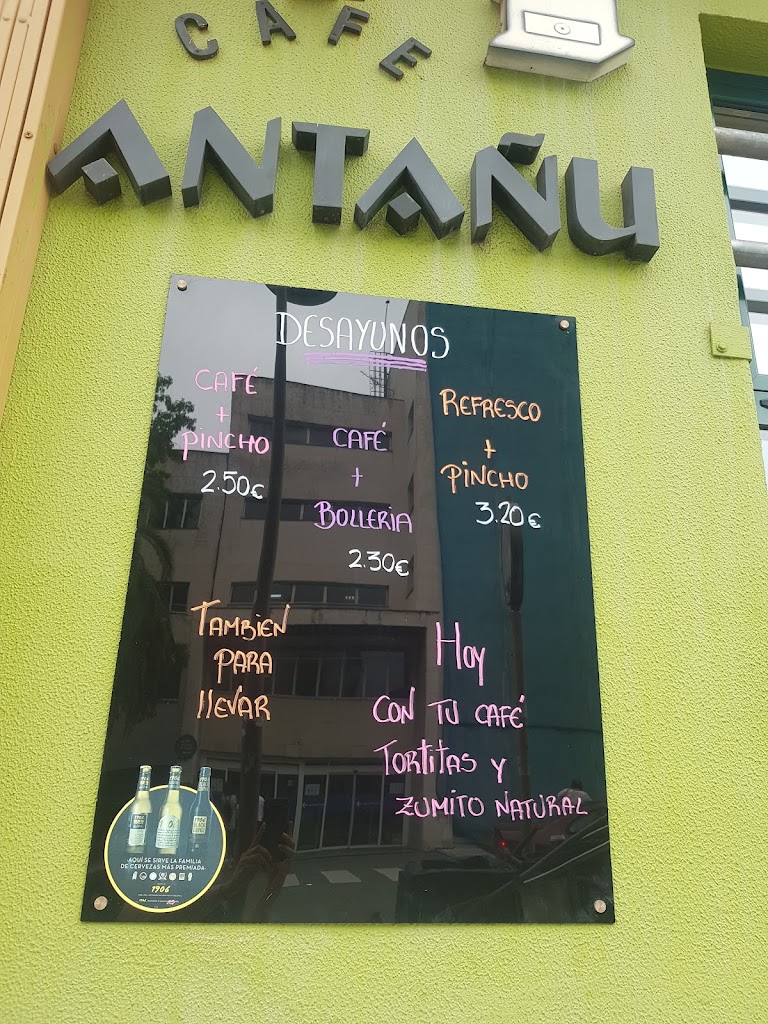 CAFE
ANTAÑU
DESAYUNOS
CAFÉ
+
PINCHO
2.50€
CAFÉ
+
BOLLERIA
2.30€
REFRESCO
+
PINCHO
3.20€
TAMBIEN
PARA
LLEVAR
HOY
CON TU CAFÉ
TORTITAS Y
ZUMITO NATURAL
AQUÍ SE SIRVE LA FAMILIA
DE CERVEZAS MÁS PREMIADA
1906